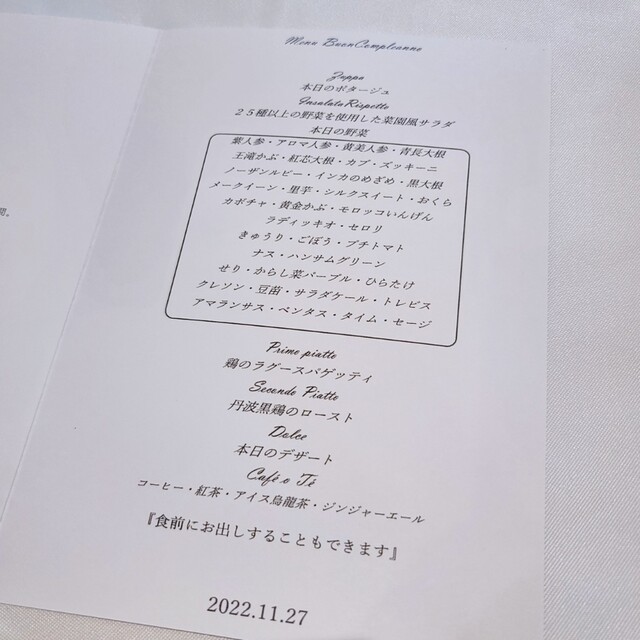 Menu BuonCompleanno
Zuppa
本日のポタージュ
InsalataRispetto
２５種以上の野菜を使用した菜園風サラダ
本日の野菜
紫人参・アロマ人参・黄美人参・青長大根
王滝かぶ・紅芯大根・カブ・ズッキーニ
ノーザンルビー・インカのめざめ・黒大根
メークイーン・里芋・シルクスイート・おくら
カボチャ・黄金かぶ・モロッコいんげん
ラディッキオ・セロリ
きゅうり・ごぼう・プチトマト
ナス・ハンサムグリーン
せり・からし菜パープル・ひらたけ
クレソン・豆苗・サラダケール・トレビス
アマランサス・ペンタス・タイム・セージ
Primo piatto
鶏のラグースパゲッティ
Secondo Piatto
丹波黒鶏のロースト
Dolce
本日のデザート
Café o Té
コーヒー・紅茶・アイス烏龍茶・ジンジャーエール
『食前にお出しすることもできます』
2022.11.27